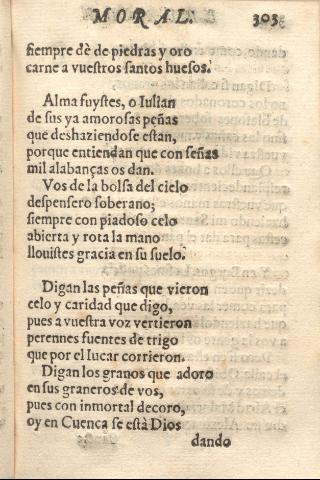 MORAL. 303
siempre dè de piedras y oro
carne a vuestros santos huesos.
Alma fuystes, o Iulian
de sus ya amorosas peñas
que deshaziendose estan,
porque entiendan que con señas
mil alabanças os dan.
Vos de la bolsa del cielo
despensero soberano;
siempre con piadoso celo
abierta y rota la mano
llouistes gracia en su suelo.
Digan las peñas que vieron
celo y caridad que digo,
pues a vuestra voz vertieron
perennes fuentes de trigo
que por el Iucar corrieron.
Digan los granos que adoro
en sus graneros de vos,
pues con inmortal decoro,
oy en Cuenca se està Dios
dando